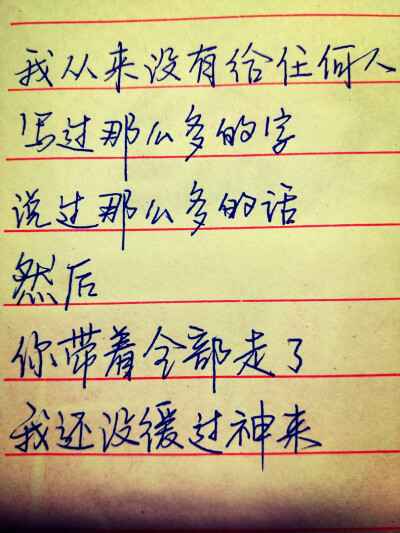 我从来没有给任何人
写过那么多的字
说过那么多的话
然后
你带着全部走了
我还没缓过神来